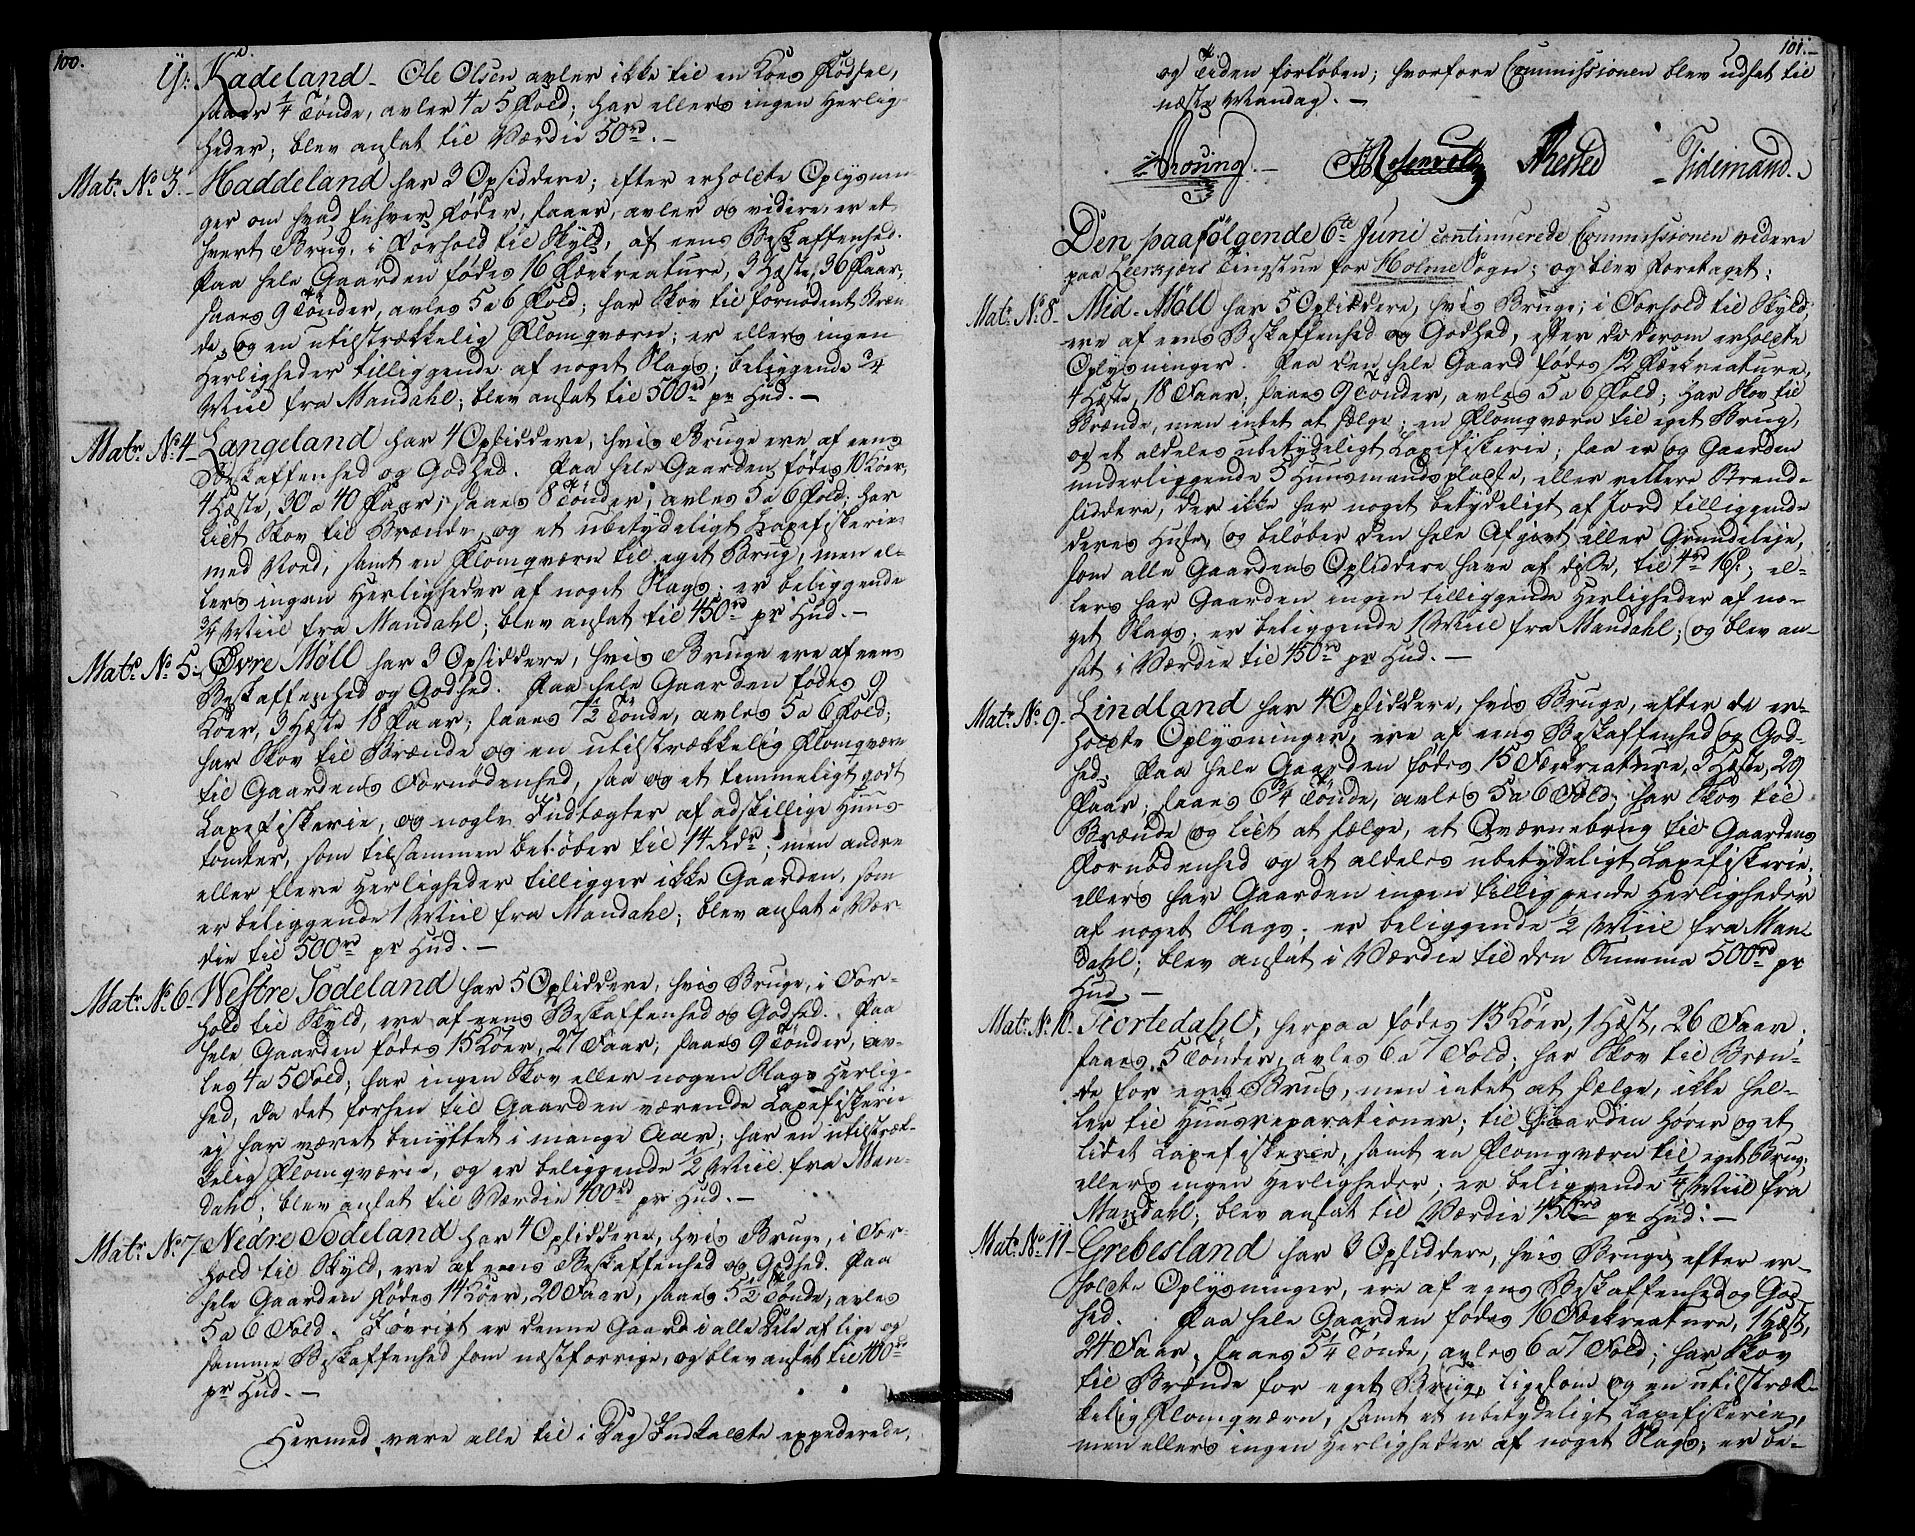 100.
Y: Kadeland - Ole Olsen avler ikke til en Koes Fødsel,
saaer 1/4 Tønde, avler 4 a 5 Fold; har ellers ingen Herlig-
heder; blev ansat til Værdie 50rd. -
Matr. No 3. Haddeland har 2 Opsiddere; efter erholdte Oplysnin-
ger om hvad enhver føder, saaer, avler og videre, er et-
hvert Brug, i Forhold til Skyld, af eens Beskaffenhed.
Paa hele Gaarden fødes 16 Fækreature, 3 Hæste, 36 Faar,
saaes 9 Tønder, avles 5 a 6 Fold; har Skov til fornødent Bræn-
de, og en utilstrækkelig Flomqværn; er ellers ingen
Herligheder tilliggende af noget Slags; beliggende 3/4
Miil fra Mandahl; blev ansat til 500rd pr Hud. -
Matr. No 4 - Langeland har 4 Opsiddere, hvis Bruge ere af eens
Beskaffenhed og Godhed. Paa hele Gaarden fødes 10 Køer,
4 Hæste, 30 a 40 Faar; saaes 8 Tønder; avles 5 a 6 Fold; har
liet Skov til Brænde, og et ubetydeligt Laxefiskerie
med Noed, samt en Flomqværn til eget Brug, men el-
lers ingen Herligheder af noget Slags; er beliggende
3/4 Miil fra Mandahl; blev ansat til 450rd pr Hud. -
Matr. No 5. Øvre Møll har 3 Opsiddere, hvis Bruge ere af eens
Beskaffenhed og Godhed. Paa hele Gaarden fødes 9
Køer, 3 Hæste 18 Faar; saaes 7 1/2 Tønde, avles 5 a 6 Fold;
har Skov til Brænde og en utilstrækkelig Flomqværn
til Gaardens Fornødenhed, saa og et temmeligt godt
Laxefiskerie, og nogle Indtægter af adskillige Huus-
tomter, som tilsammen beløber til 14 Rdr; men andre
eller flere Herligheder tilligger ikke Gaarden, som
er beliggende 1 Miil fra Mandahl; blev ansat i Vær
die til 500rd pr Hud. -
Matr. No 6 - Westre Sodeland har 5 Opsiddere, hvis Bruge, i For-
hold til Skyld, ere af eens Beskaffenhed og Godhed. Paa
hele Gaarden fødes 15 Køer, 27 Faar; saaes 9 Tønder, av-
les 4 a 5 Fold; har ingen Skov eller nogen Slags Herlig-
hed, da det forhen til Gaarden værende Laxefiskerie
ej har været benyttet i mange Aar; har en utilstræk-
kelig Flomqværn, og er beliggende 1/2 Miil fra Man-
dahl; blev ansat til Værdie 400rd pr Hud. -
Matr. No 7 Nedre Sodeland har 4 Opsiddere, hvis Bruge, i For-
hold til Skyld, ere af eens Beskaffenhed og Godhed. Paa
hele Gaarden fødes 14 Køer, 20 Faar, saaes 5 1/2 Tønde, avles
5 a 6 Fold. Iøvrigt er denne Gaard i alle Dele af lige og
samme Beskaffenhed som næstforrige, og blev ansat til 400rd
pr Hud. -
Hermed vare alle til i Dag Indkaldte expederede,
101.
og Tiden forløben; hvorfore Commissionen blev udsat til
næste Mandag. -
Tidemand.
Den paafølgende 6te Juni continuerede Commissionen videre
paa Leerkjærs Tingstue for Holme Sogn; og blev foretaget:
Matr. No 8 - Mid-Møll har 5 Opsiddere, hvis Bruge, i Forhold til Skyld,
ere af eens Beskaffenhed og Godhed, efter de derom erholdte
Oplysninger. Paa den hele Gaard fødes 12 Fækreature,
4 Hæste, 18 Faar; saaes 9 Tønder, avles 5 a 6 Fold; har Skov til
Brænde, men intet at sælge; en Flomqværn til eget Brug,
og et aldeles ubetydeligt Laxefiskerie; saa er og Gaarden
underliggende 5 Huusmandspladse, eller rettere Strand-
siddere, der ikke har noget betydeligt af Jord tilliggende
deres Huse, og beløber den hele Afgivt eller Grundeleje,
som alle Gaardens Opsiddere have af disse, til 4rd 16s; el-
lers har Gaarden ingen tilliggende Herligheder af no-
get Slags; er beliggende 1 Miil fra Mandahl; og blev an-
sat i Værdie til 450rd pr Hud. -
Matr. No 9. Lindland har 4 Opsiddere, hvis Bruge, efter de er-
holdte Oplysninger, ere af eens Beskaffenhed og God-
hed. Paa hele Gaarden fødes 15 Fækreature, 3 Hæste, 29
Faar; saaes 6 3/4 Tønde, avles 5 a 6 Fold; har Skov til
Brænde og liet at sælge, et Qværnebrug til Gaardens
Fornødenhed og et aldeles ubetydeligt Laxefiskerie;
ellers har Gaarden ingen tilliggende Herligheder
af noget Slags; er beliggende 1/2 Miil fra Man-
dahl; blev ansat i Værdie til den Summa 500rd pr
Hud. -
Matr. No 10. Fiortedahl, herpaa fødes 13 Køer, 1 Hæst, 26 Faar;
saaes 5 Tønder, avles 6 a 7 Fold; har Skov til Bræn-
de for eget Brug, men intet at sælge, ikke hel-
ler til Huusreparationer; til Gaarden hører og et
lidet Laxefiskerie, samt en Flomqværn til eget Brug,
ellers ingen Herligheder; er beliggende 1/4 Miil fra
Mandahl; blev ansat til Værdie 450rd pr Hud. -
Matr. No 11 - Grebesland har 3 Opsiddere, hvis Bruge, efter er-
holdte Oplysninger, ere af eens Beskaffenhed og God
hed. Paa hele Gaarden fødes 16 Fækreature, 1 Hæst,
24 Faar, saaes 5 1/4 Tønde, avles 6 a 7 Fold; har Skov
til Brænde for eget Brug, ligesom og en utilstræk-
kelig Flomqværn, samt et ubetydeligt Laxefiskerie,
men ellers ingen Herligheder af noget Slags; er be-